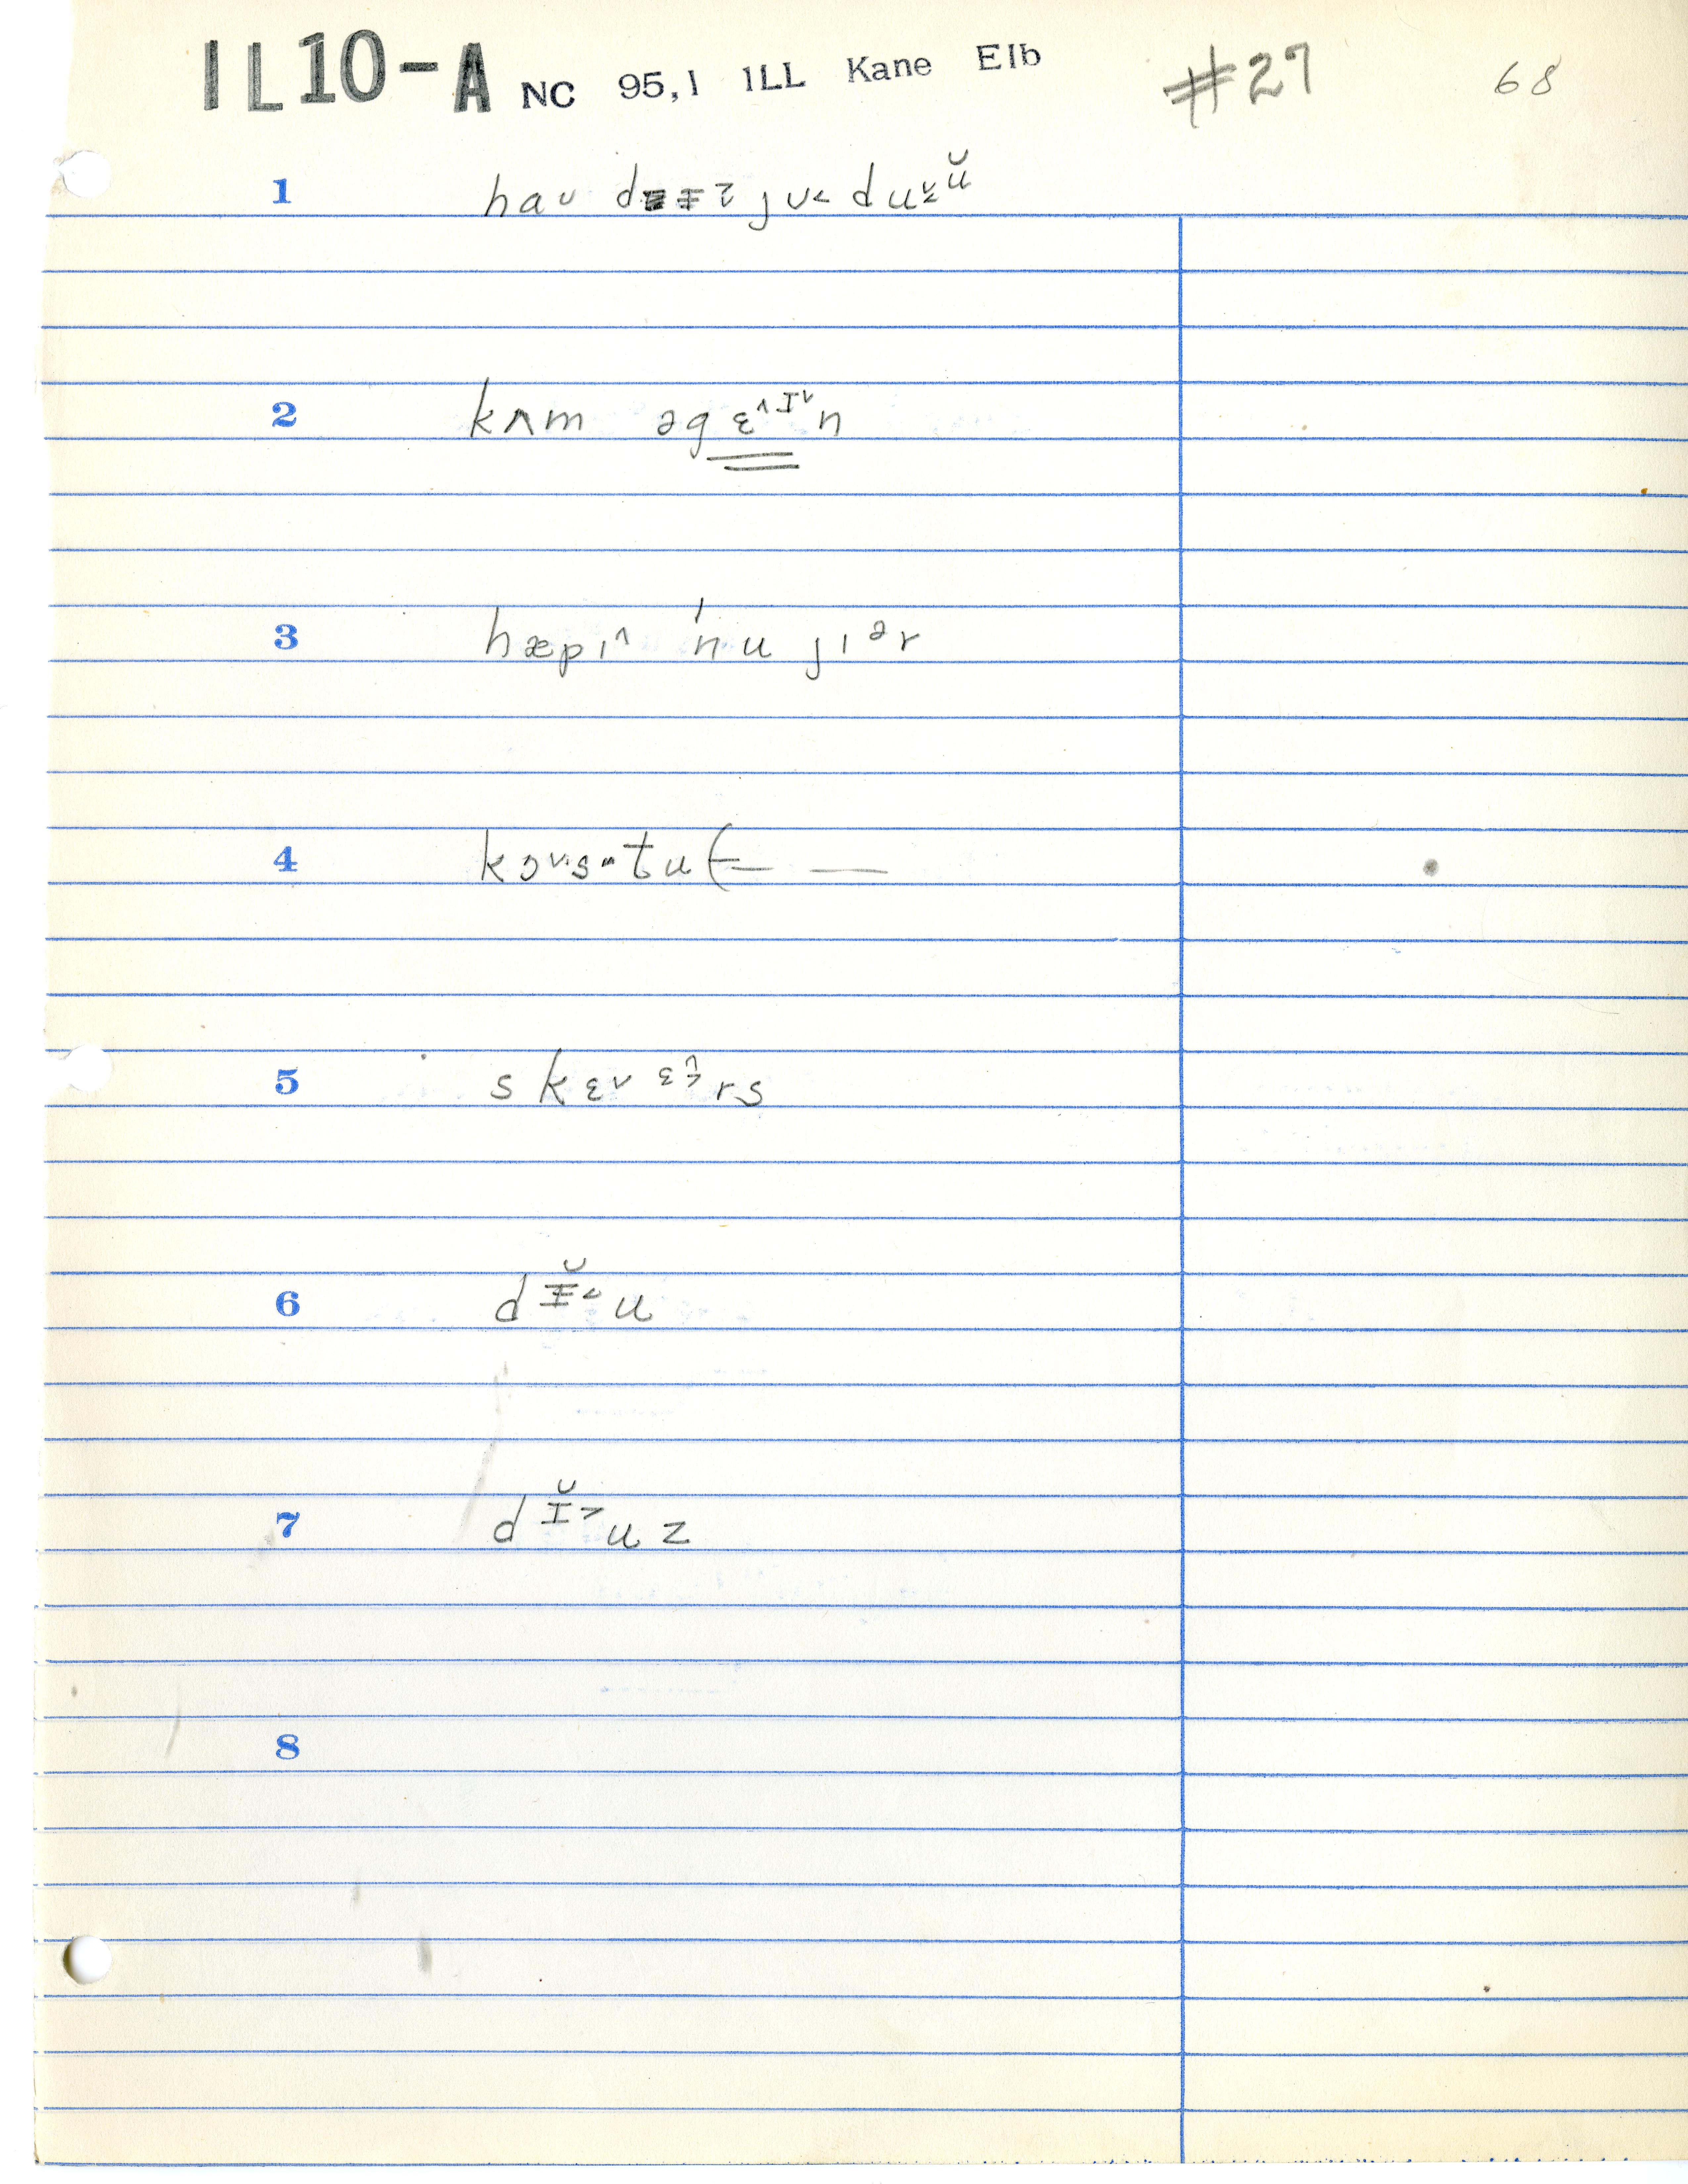 IL10-A NC 95,1 ILL Kane Elb #27 68
1 haʊ dɨʔjʊ˂ duˇ̵ŭ
2 kʌm əgɛ^ɪˇn
3 hæpɪ^ ˈnu jɪᵊr
4 kɔˇ·s-tu(— —
5 skɛˇɛɜ^rs
6 dɨ̆˂u
7 dɪ̆˃uz
8